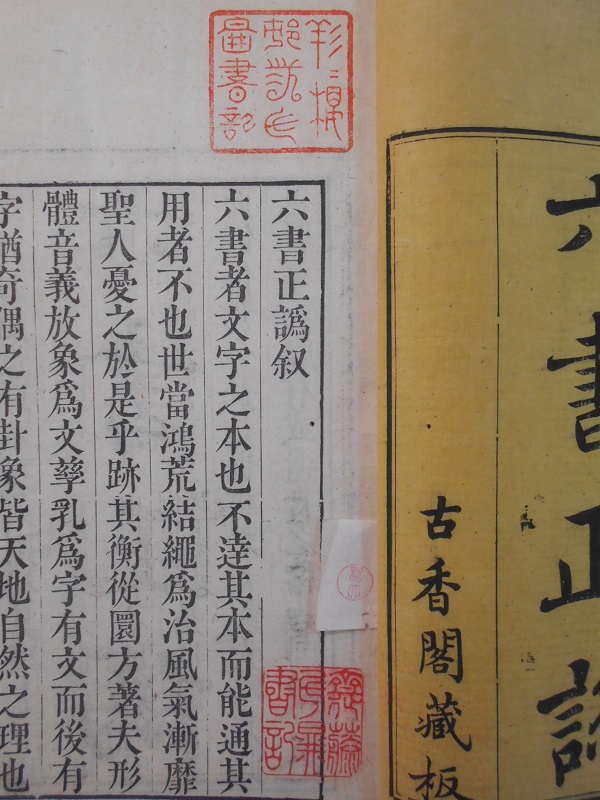 六書正譌
古香閣藏板
圖書記
六書正譌叙
六書者文字之本也不達其本而能通其
用者不也世當鴻荒結繩爲治風氣漸靡
聖人憂之於是乎跡其衡從圜方著夫形
體音義放象爲文孳乳爲字有文而後有
字猶奇偶之有卦象皆天地自然之理也
書記